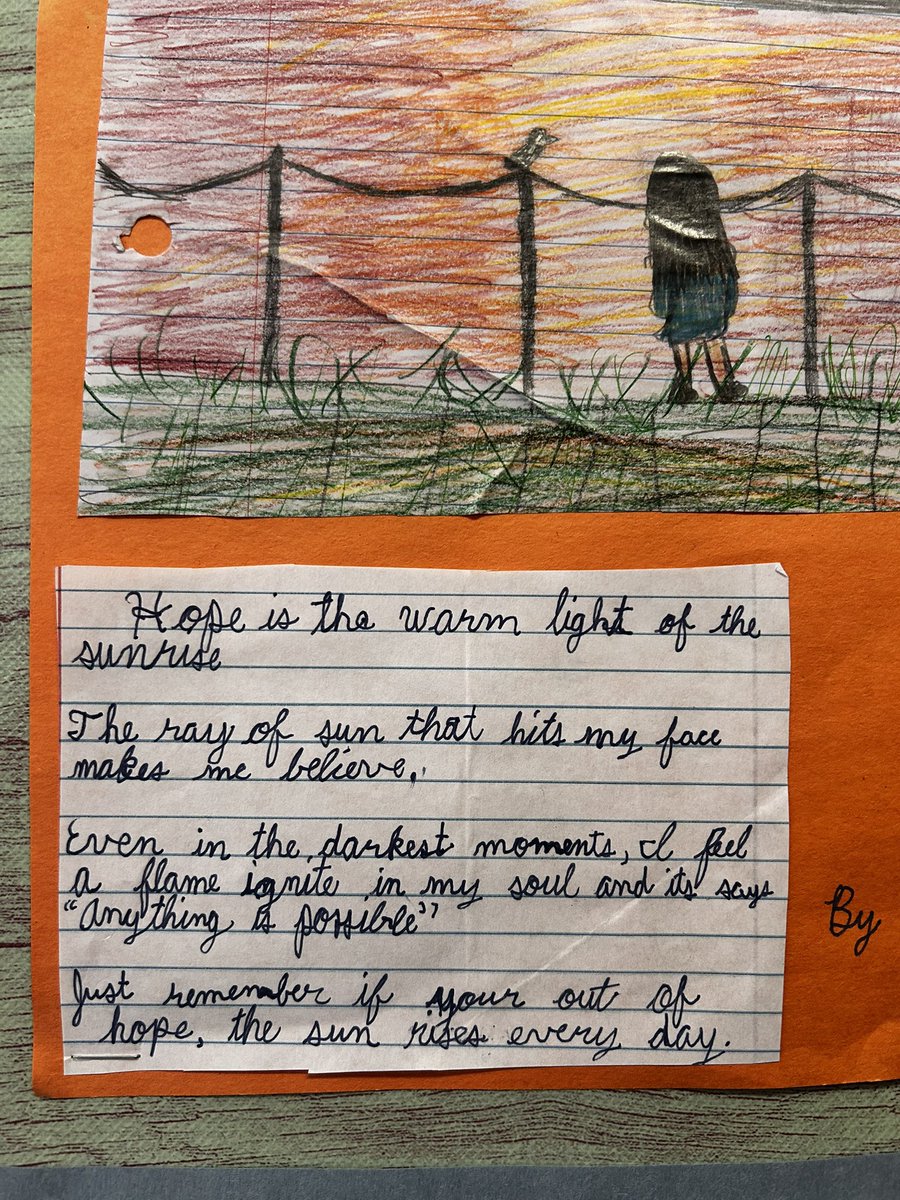 Hope is the warm light of the
sunrise
The ray of sun that hits my face
makes me believe.
Even in the darkest moments, I feel
a flame ignite in my soul and its says
"Anything is possible"
Just remember if your out of
hope, the sun rises every day.
By